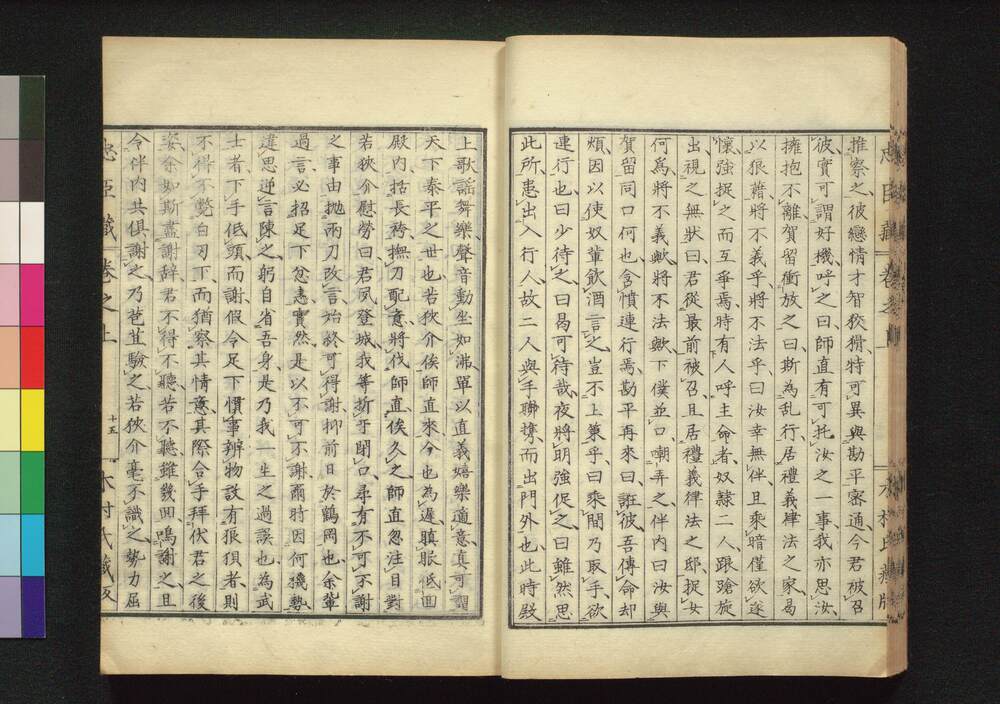 忠臣藏 卷之上 木村氏藏版
推察之彼戀情才智狡猾特可異與勘平密通今君被召
彼實可謂好機呼之曰師直有可托汝之一事我亦思汝
擁抱不離賀留衝放之曰斯為乱行居禮義律法之家曷
以狼藉將不義乎將不法乎曰汝幸無伴且乘暗僅欲遂
懷強捉之而互爭焉時有人呼主命者奴隷二人踉蹌旋
出視之無狀曰君從最前被召且居禮義律法之邸捉女
何為將不義歟將不法歟下僕並口嘲弄之伴内曰汝與
賀留同口何也含憤連行焉勘平再來曰誑彼吾傳命却
煩因以使奴輩飲酒言之豈不上策乎曰乘間乃取手欲
連行也曰少待之曰曷可待哉夜將明強促之曰雖然思
此所患出入行人故二人與手聯携而出門外也此時殿
上歌謡舞樂聲音動坐如沸單以直義嬉樂適意真可謂
天下泰平之世也若狹介俟師直來今也為遲瞋眼低回
殿内括長袴撫刀配意將伐師直俟久之師直忽注目對
若狹介慰勞曰君夙登城我等折于閉口尋有不可不謝
之事由抛兩刀改言始終可得謝抑前日於鶴岡也余輩
過言必招足下忿恚實然是以不可不謝爾時因何機勢
違思逆言陳之躬自省吾身是乃我一生之過誤也為武
士者下手低頭而謝假令足下慣事辨物設有狼狽者則
不得不斃白刃下而猶察其情意其際合手拜伏君之後
姿余如斯盡謝辞君不得不聽若不聽雖幾回嗚謝之且
令伴内共俱謝之乃芭苴驗之若狹介毫不識之勢力屈
忠臣藏 卷之上 十五 木村氏藏版